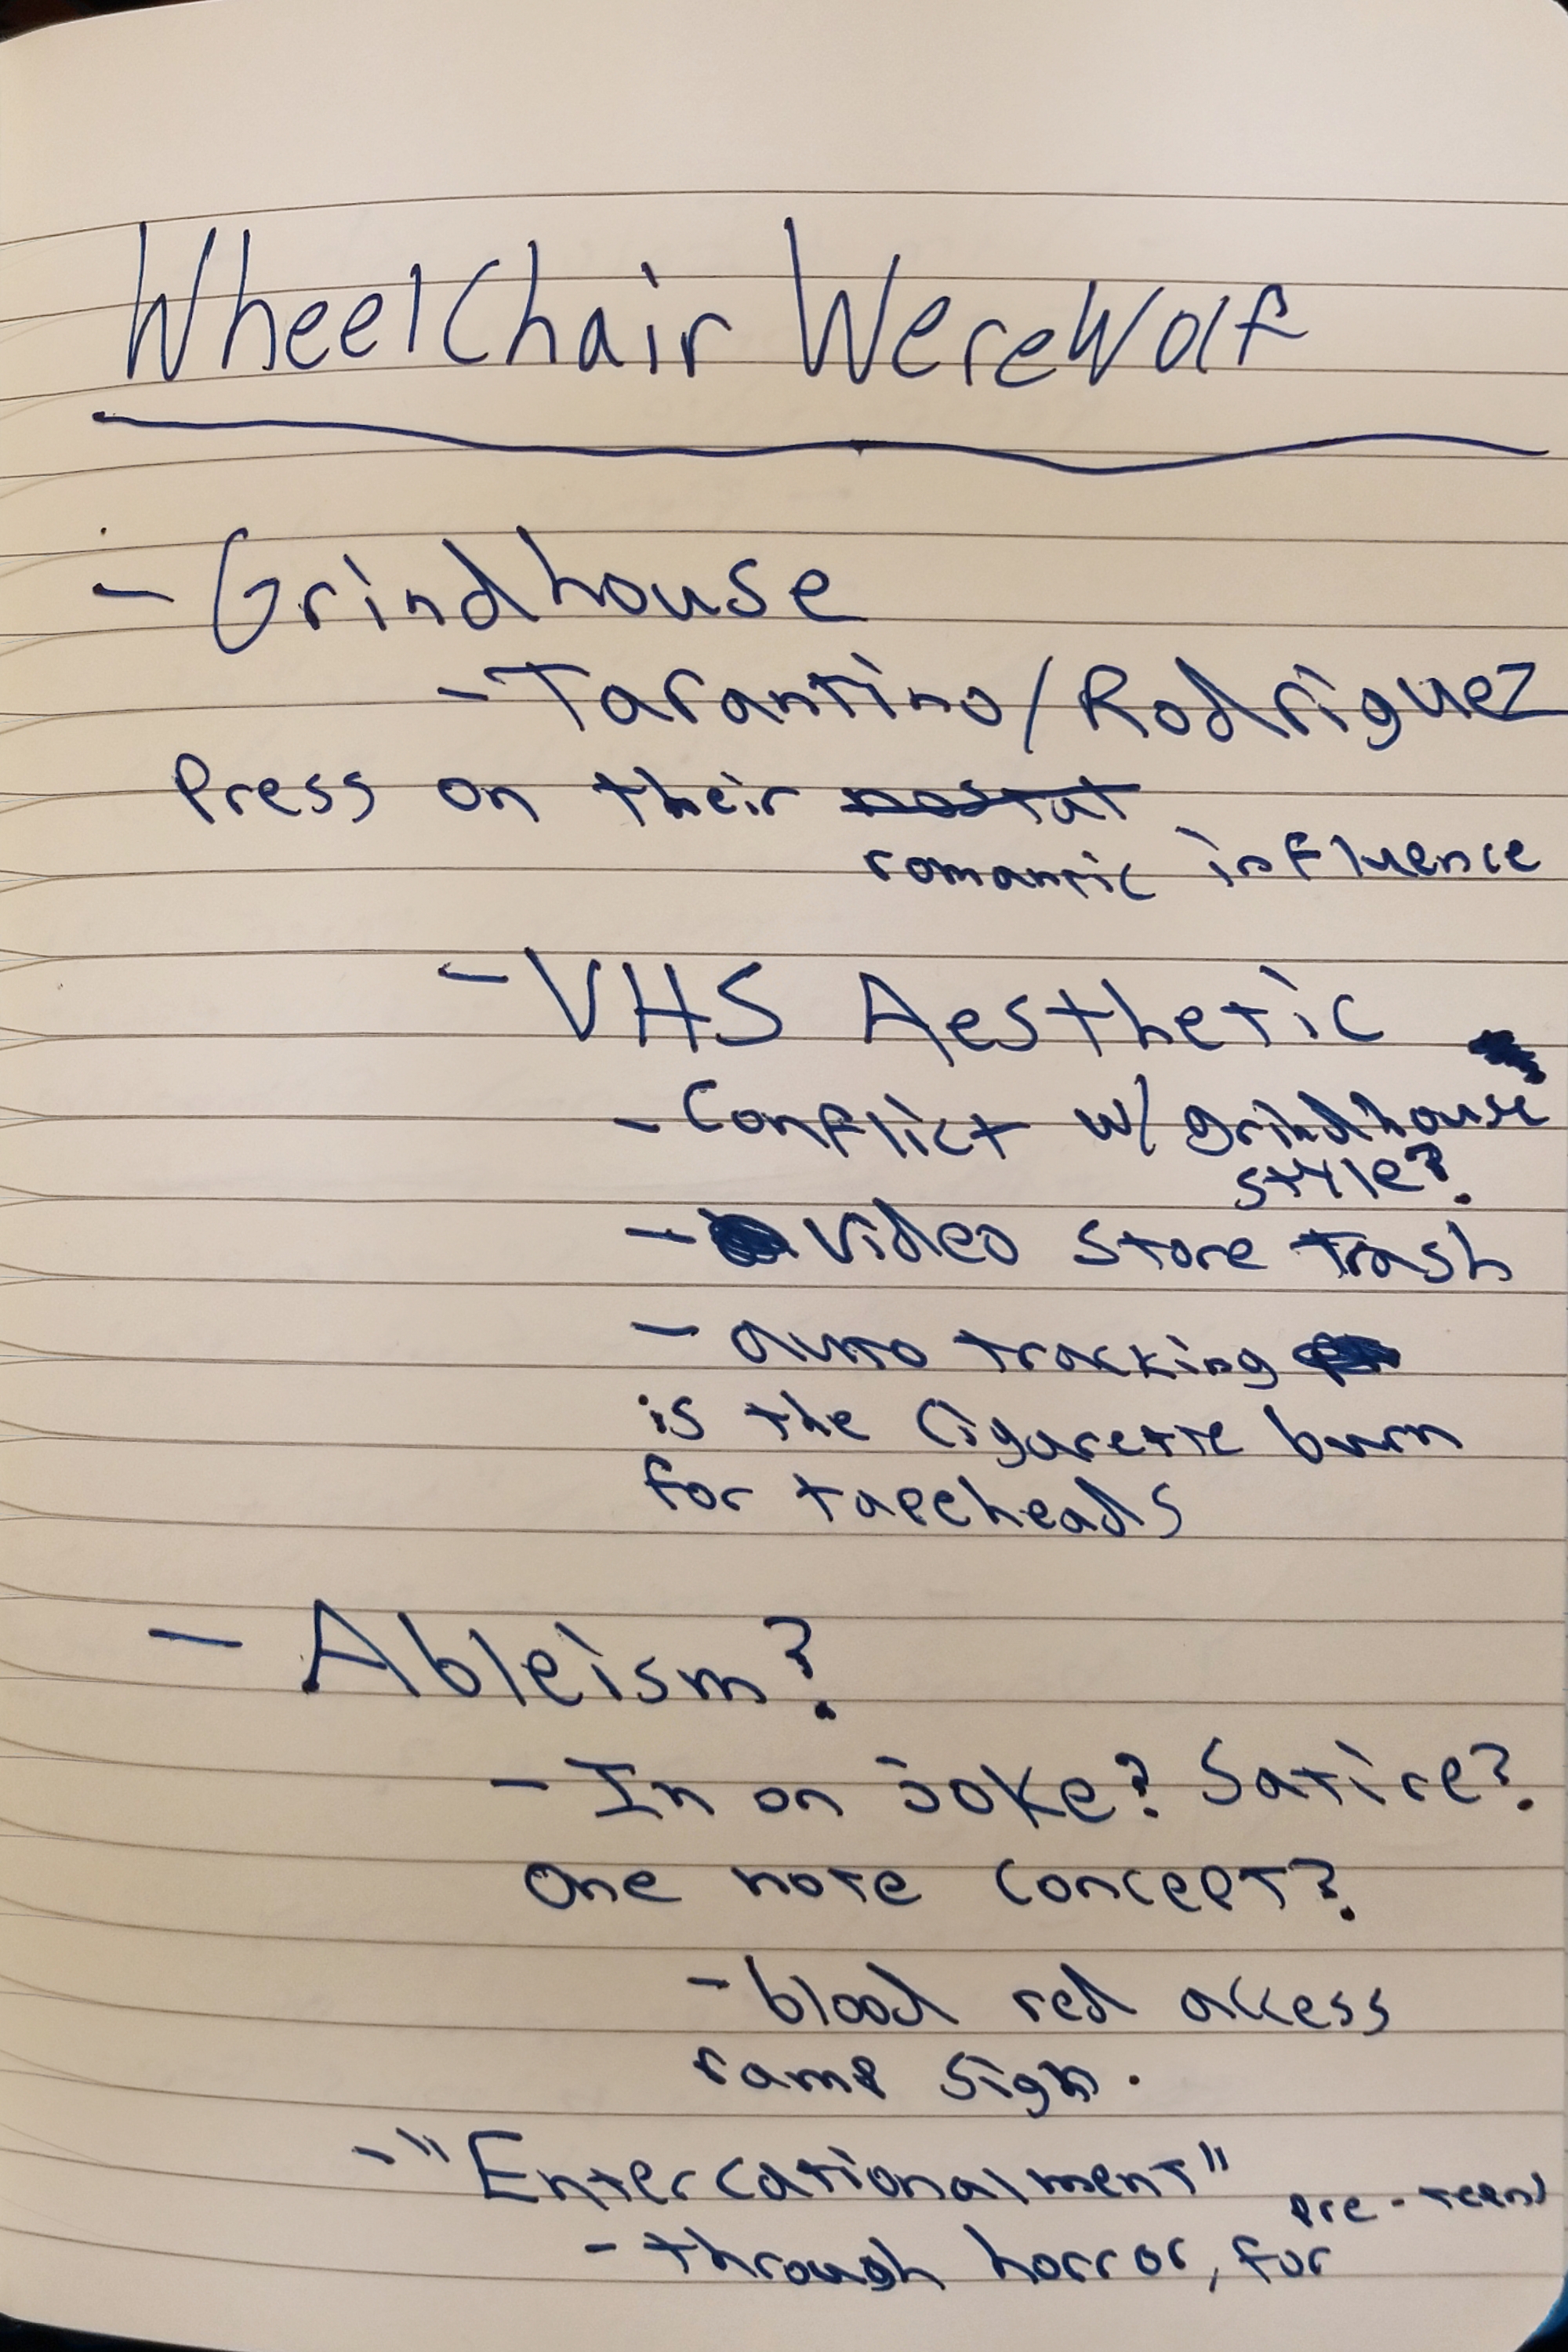 WheelChair WereWolf
- Grindhouse
- Tarantino/Rodriguez
Press on their nostat
romantic influence
- VHS Aesthetic
- Conflict w/ grindhouse
style?
- Video Store trash
- auto tracking
is the cigarette burn
for tapeheads
- Ableism?
- In on joke? Satire?
One note concept?
- blood red access
ramp sign.
- "Entercationalment"
- through horror, for pre-teens